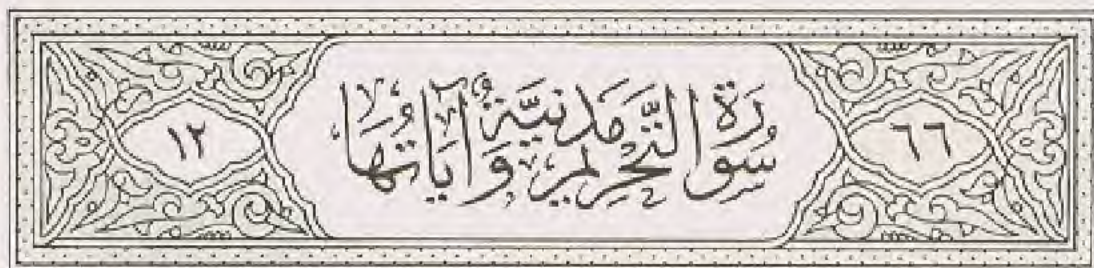 ٦٦ سُورَةُ التَّحْرِيمِ مَدَنِيَّةٌ وَآيَاتُهَا ١٢